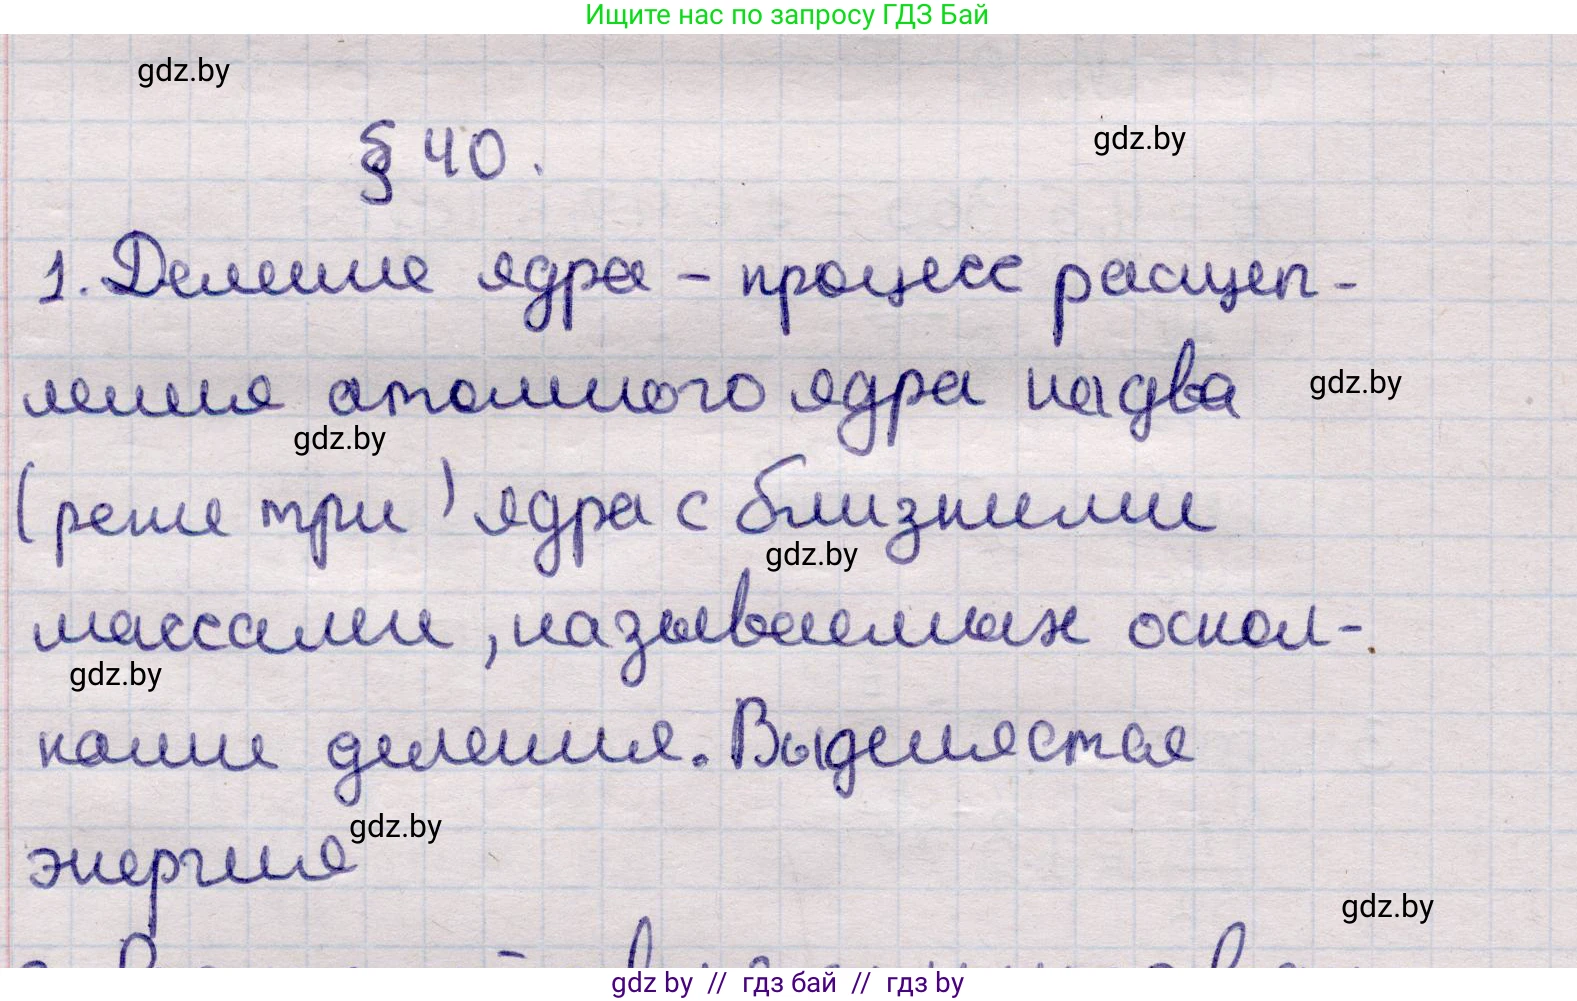 Ищите нас по запросу ГДЗ Бай
gdz.by
§ 40.
gdz.by
1. Деление ядра - процесс расщеп-
ления атомного ядра на два
gdz.by
gdz.by
(реже три) ядра с близкими
gdz.by
массами, называемых оскол-
gdz.by
ками деления. Выделяется
gdz.by
энергия
gdz.by
gdz by // гдз бай // гдз by